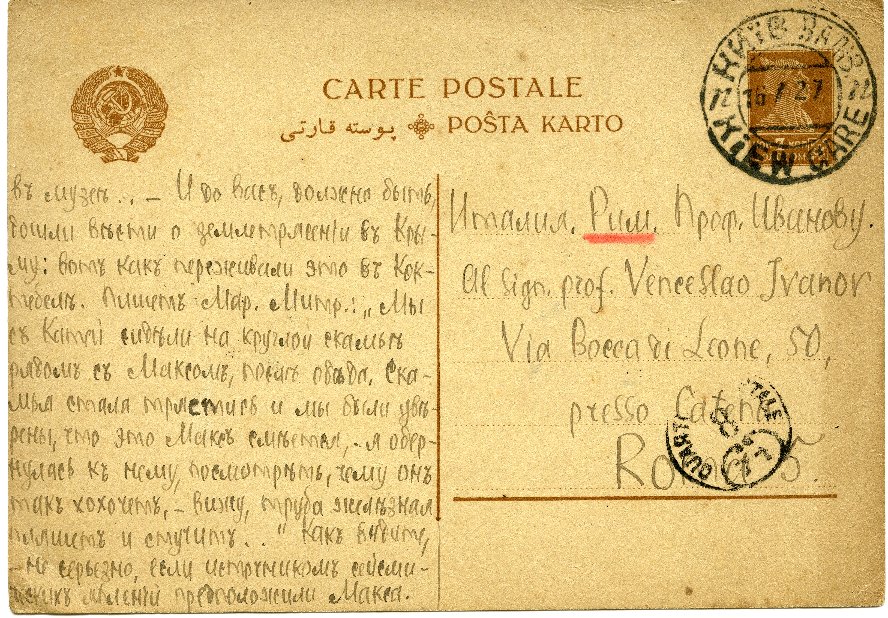 CARTE POSTALE
پوسته قارتى
POŜTA KARTO
КИЇВ ВОКЗ
16 7 27
KIÏW GARE
въ музеѣ... – И до васъ, должно быть,
дошли вѣсти о землетрясеніи въ Кры-
му: вотъ какъ переживали это въ Кок-
тебелѣ. Пишетъ Мар. Митр.: „Мы
съ Катей сидѣли на круглой скамьѣ
рядомъ съ Максомъ, послѣ обѣда. Ска-
мья стала трястись и мы были увѣ-
рены, что это Максъ смѣется, – я обер-
нулась къ нему, посмотрѣть, чему онъ
такъ хохочетъ, – вижу, труба желѣзная
пляшетъ и стучитъ..." Какъ видите,
– не серьезно, если источникомъ сейсми-
ческихъ явленій предположили Макса.
Италия. Рим. Проф. Иванову.
Al Sign. prof. Venceslao Ivanov
Via Bocca di Leone, 50,
presso Catena
Roma